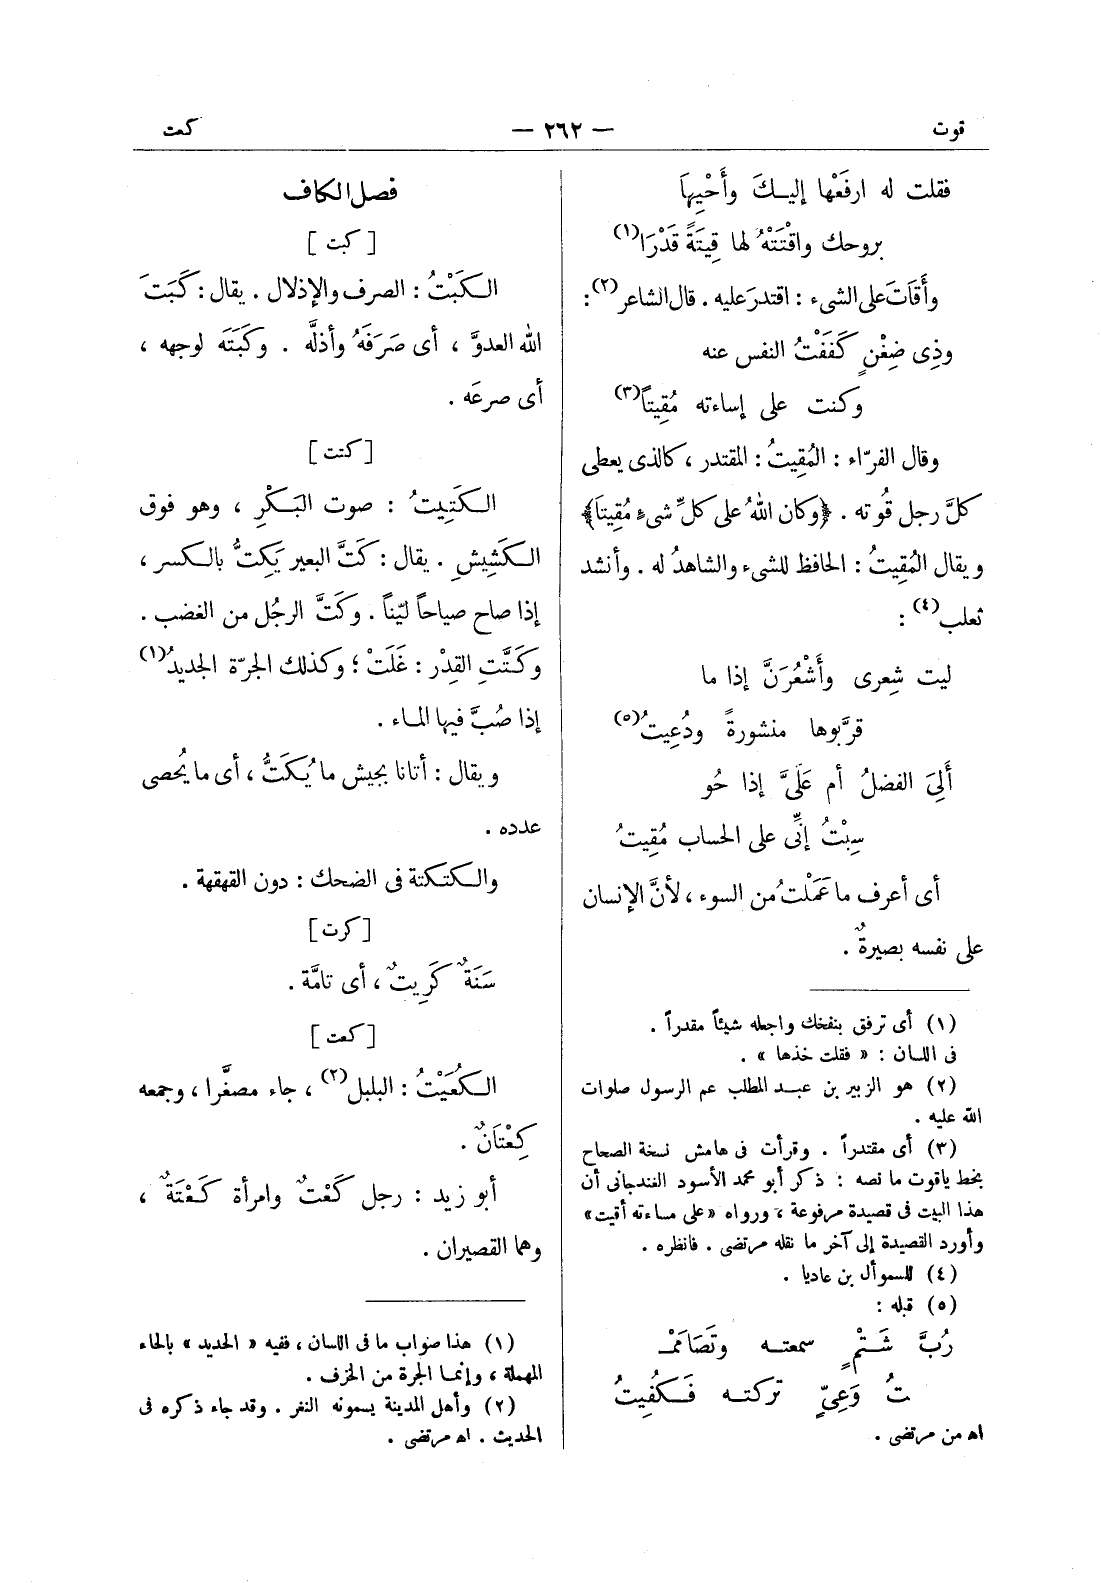 قوت
— ٢٦٢ —
كعت
فقلت له ارفَعْها إليـكَ وأَحْيِهَا
بروحك واقْتَتْهُ لها قِيتَةً قَدْرَا(١)
وأَقَاتَ على الشىء : اقتدرَ عليه . قال الشاعر(٢) :
وذِى ضِغْنٍ كَفَفْتُ النفس عنه
وكنت على إساءته مُقِيتاً(٣)
وقال الفرّاء : المُقِيتُ : المقتدر ، كالذى يعطى
كلَّ رجل قُوته . ﴿وكان اللهُ على كلِّ شىءٍ مُقِيتَا﴾
ويقال المُقِيتُ : الحافظ للشىء والشاهدُ له . وأنشد
ثعلب(٤) :
ليت شِعرى وأَشْعُرَنَّ إذا ما
قرَّبوها منشورةً ودُعِيتُ(٥)
أَلِىَ الفضلُ أم عَلَىَّ إذا حُو
سِبْتُ إنِّى على الحساب مُقِيتُ
أى أعرف ما عَمَلْتُ من السوء ، لأنَّ الإنسان
على نفسه بصيرةٌ .
(١) أى ترفق بنفخك واجعله شيئاً مقدراً .
فى اللسان : « فقلت خذها » .
(٢) هو الزبير بن عبـد المطلب عم الرسول صلوات
الله عليه .
(٣) أى مقتدراً . وقرأت فى هامش نسخة الصحاح
بخط ياقوت ما نصه : ذكر أبو محمد الأسود الغندجانى أن
هذا البيت فى قصيدة مرفوعة ، ورواه «على مساءته أقيت»
وأورد القصيدة إلى آخر ما نقله مرتضى . فانظره .
(٤) للسموأل بن عاديا .
(٥) قبله :
رُبَّ شَـتْمٍ سمعتـه وتَصَامَمْـ
ـتُ وَعِىٍّ تركتـه فَـكُفِيتُ
اه من مرتضى .
فصل الكاف
[ كبت ]
الـكَبْتُ : الصرف والإذلال . يقال : كَبَتَ
الله العدوَّ ، أى صَرَفَهُ وأذلَّه . وكَبَتَه لوجهه ،
أى صرعَه .
[ كتت ]
الـكَتِيتُ : صوت البَـكْرِ ، وهو فوق
الـكَشِيشِ . يقال : كَتَّ البعير يَكِتُّ بالـكسر ،
إذا صاح صياحاً ليّناً . وكَتَّ الرجُل من الغضب .
وكَتَّتِ القِدْر : غَلَتْ ؛ وكذلك الجرّة الجديدُ(١)
إذا صُبَّ فيها المـاء .
ويقال : أتانا بجيش ما يُكَتُّ ، أى ما يُحصى
عدده .
والـكتكتة فى الضحك : دون القهقهة .
[ كرت ]
سَنَةٌ كَرِيتٌ ، أى تامَّة .
[ كعت ]
الـكُعَيْتُ : البلبل(٢) ، جاء مصغَّرا ، وجمعه
كِعْتَانٌ .
أبو زيد : رجل كَعْتٌ وامرأة كَـعْتَةٌ ،
وهما القصيران .
(١) هذا صواب ما فى اللسان ، ففيه « الحديد » بالحاء
المهملة ، وإنمـا الجرة من الخزف .
(٢) وأهل المدينة يسمونه النغر . وقد جاء ذكره فى
الحديث . اه مرتضى .